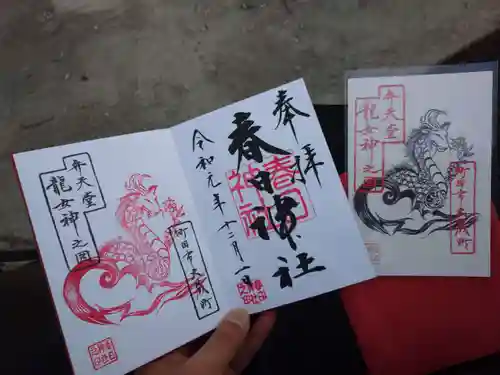 奉拝
春日神社
春日神社
令和元年十二月一日
弁天堂
龍女神之図
町田市三輪町
弁天堂
龍女神之図
町田市三輪町